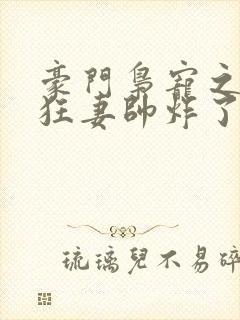 豪門梟寵之
狂妻帥炸了
琉璃兒不易碎